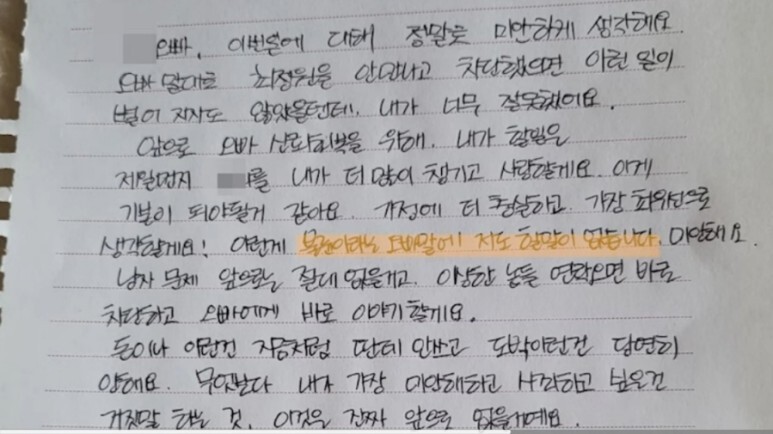 오빠. 이번일에 대해 정말로 미안하게 생각해요
오빠 말대로 최정원을 안만나고 차단했으면 이런 일이
벌어지지도 않았을텐데. 내가 너무 잘못했어요.
앞으로 오빠 신뢰회복을 위해. 내가 할일은
제일먼저 를 내가 더 많이 챙기고 사랑할게요. 이게
기본이 되야할거 같아요. 가정에 더 충실하고. 가장 최우선으로
생각할게요! 이런게 불륜이라는 오빠말에 저도 할말이 없습니다. 미안해요.
남자 문제 앞으로는 절대 없을거고. 이상한 놈들 연락오면 바로
차단하고 오빠에게 바로 이야기할게요.
돈이나 이런건 지금처럼 딴데 안쓰고 도박이런건 당연히
안해요. 무엇보다 내가 가장 미안해하고 사과하고 싶은건
거짓말 하는 것. 이것은 진짜 앞으로 없을거에요.